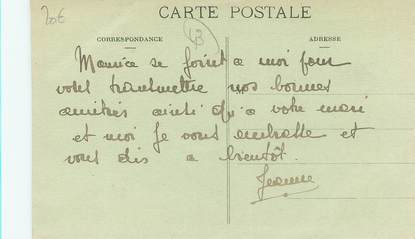 20€
CARTE POSTALE
CORRESPONDANCE
ADRESSE
Maurice se joint a moi pour
vous transmettre nos bonnes
amitiés ainsi qu'a votre mari
et moi je vous embrasse et
vous dis a bientôt.
Jeanne